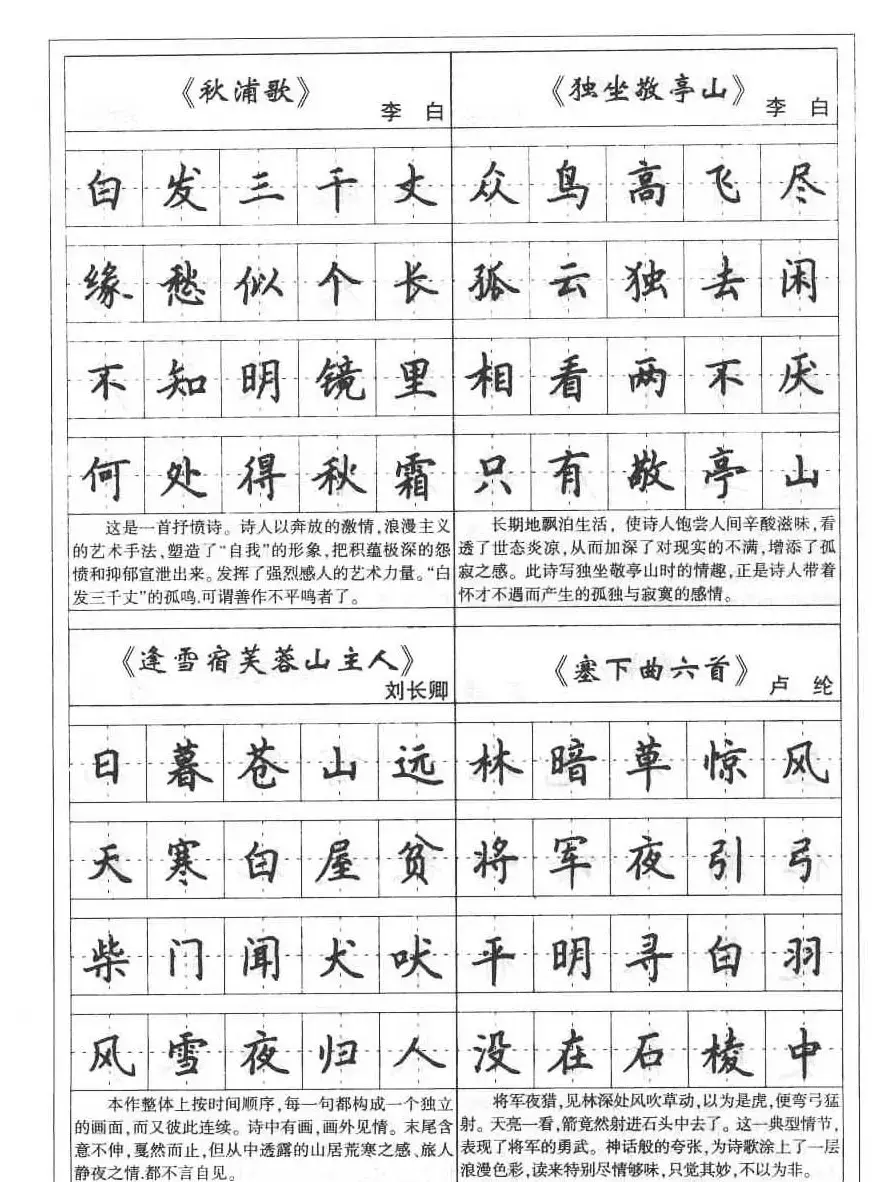 《秋浦歌》
李 白
白发三千丈
缘愁似个长
不知明镜里
何处得秋霜
这是一首抒愤诗。诗人以奔放的激情,浪漫主义
的艺术手法、塑造了“自我”的形象,把积蕴极深的怨
愤和抑郁宣泄出来。发挥了强烈感人的艺术力量。“白
发三千丈”的孤鸣,可谓善作不平鸣者了。
《独坐敬亭山》
李 白
众鸟高飞尽
孤云独去闲
相看两不厌
只有敬亭山
长期地飘泊生活，使诗人饱尝人间辛酸滋味,看
透了世态炎凉,从而加深了对现实的不满,增添了孤
寂之感。此诗写独坐敬亭山时的情趣,正是诗人带着
怀才不遇而产生的孤独与寂寞的感情。
《逢雪宿芙蓉山主人》
刘长卿
日暮苍山远
天寒白屋贫
柴门闻犬吠
风雪夜归人
本作整体上按时间顺序,每一句都构成一个独立
的画面,而又彼此连续。诗中有画,画外见情。末尾含
意不伸,戛然而止,但从中透露的山居荒寒之感、旅人
静夜之情.都不言自见。
《塞下曲六首》
卢 纶
林暗草惊风
将军夜引弓
平明寻白羽
没在石棱中
将军夜猎,见林深处风吹草动,以为是虎,便弯弓猛
射。天亮一看,箭竟然射进石头中去了。这一典型情节,
表现了将军的勇武。神话般的夸张,为诗歌涂上了一层
浪漫色彩,读来特别尽情够味,只觉其妙,不以为非。